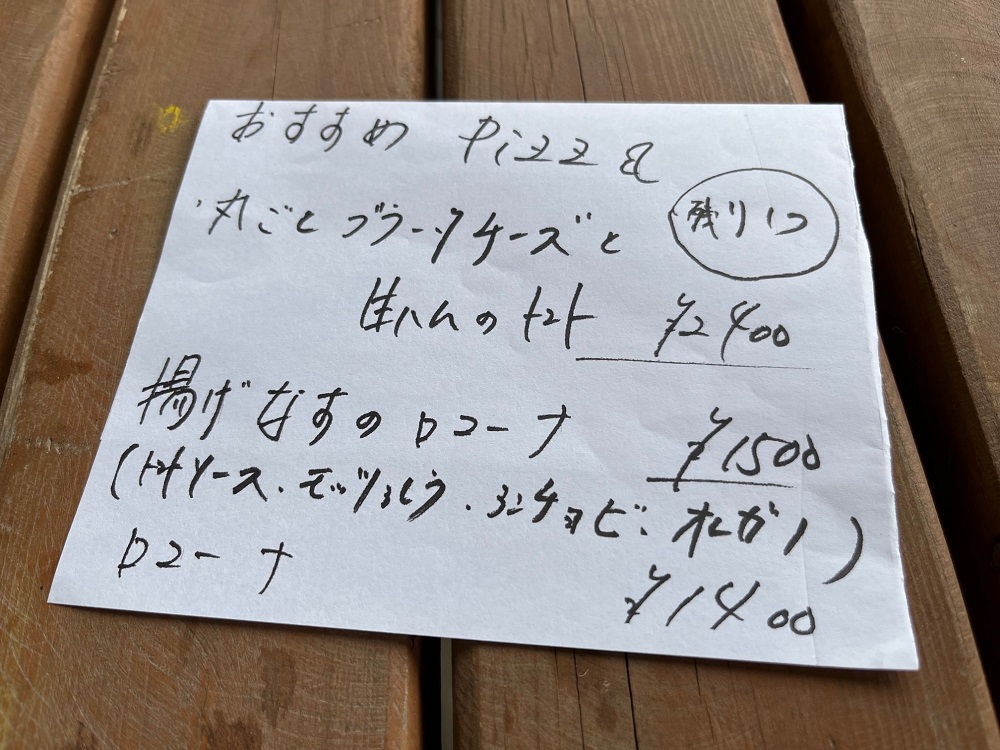 おすすめ Pizza
・丸ごとブラータチーズと 残り1つ
生ハムのトマト ¥2400
揚げなすのロマーナ ¥1500
(トマトソース、モッツァレラ、アンチョビ、オレガノ)
ロマーナ ¥1400